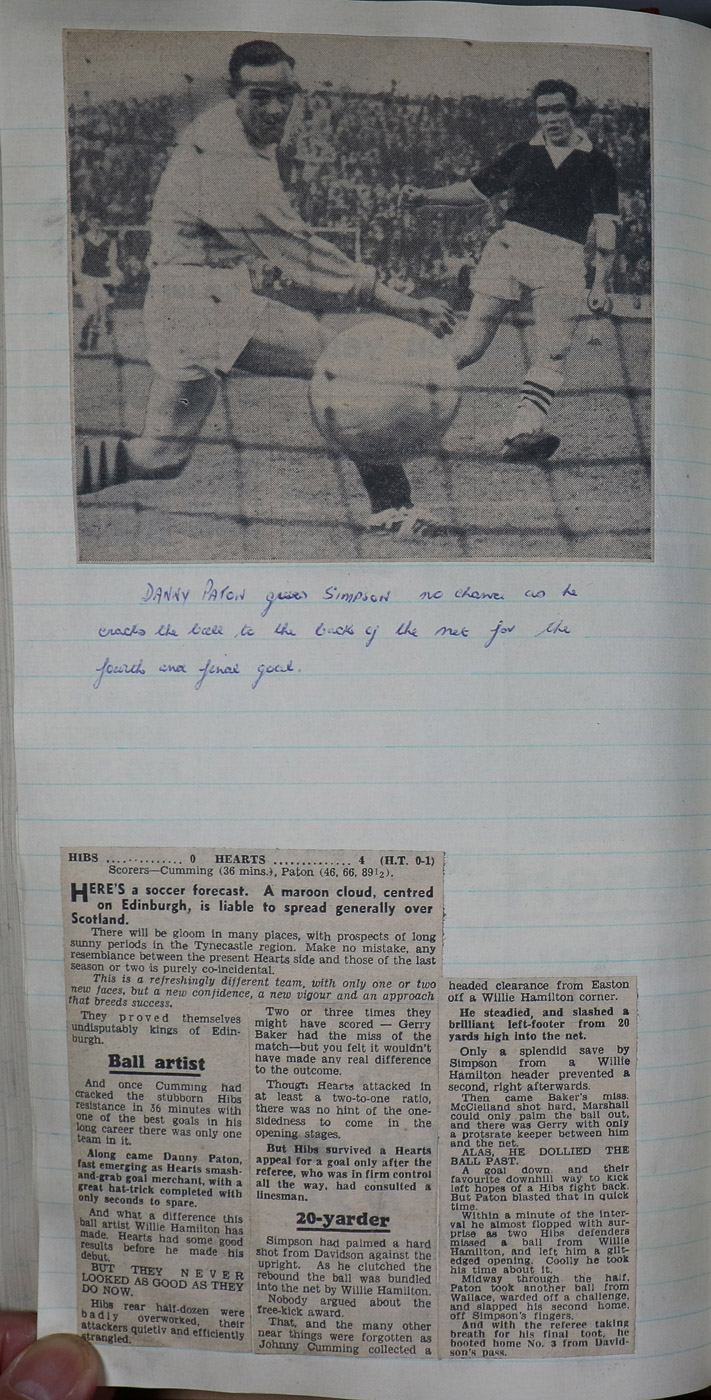 DANNY PATON gives SIMPSON no chance as he
cracks the ball to the back of the net for the
fourth and final goal.
HIBS .............. 0 HEARTS ............. 4 (H.T. 0-1)
Scorers—Cumming (36 mins.), Paton (46, 66, 89½).
HERE'S a soccer forecast. A maroon cloud, centred
on Edinburgh, is liable to spread generally over
Scotland.
There will be gloom in many places, with prospects of long
sunny periods in the Tynecastle region. Make no mistake, any
resemblance between the present Hearts side and those of the last
season or two is purely co-incidental.
This is a refreshingly different team, with only one or two
new faces, but a new confidence, a new vigour and an approach
that breeds success.
They proved themselves
undisputably kings of Edin-
burgh.
Ball artist
And once Cumming had
cracked the stubborn Hibs
resistance in 36 minutes with
one of the best goals in his
long career there was only one
team in it.
Along came Danny Paton,
fast emerging as Hearts smash-
and-grab goal merchant, with a
great hat-trick completed with
only seconds to spare.
And what a difference this
ball artist Willie Hamilton has
made. Hearts had some good
results before he made his
debut.
BUT THEY NEVER
LOOKED AS GOOD AS THEY
DO NOW.
Hibs rear half-dozen were
badly overworked, their
attackers quietly and efficiently
strangled.
Two or three times they
might have scored — Gerry
Baker had the miss of the
match—but you felt it wouldn't
have made any real difference
to the outcome.
Though Hearts attacked in
at least a two-to-one ratio,
there was no hint of the one-
sidedness to come in the
opening stages.
But Hibs survived a Hearts
appeal for a goal only after the
referee, who was in firm control
all the way, had consulted a
linesman.
20-yarder
Simpson had palmed a hard
shot from Davidson against the
upright. As he clutched the
rebound the ball was bundled
into the net by Willie Hamilton.
Nobody argued about the
free-kick award.
That, and the many other
near things were forgotten as
Johnny Cumming collected a
headed clearance from Easton
off a Willie Hamilton corner.
He steadied, and slashed a
brilliant left-footer from 20
yards high into the net.
Only a splendid save by
Simpson from a Willie
Hamilton header prevented a
second, right afterwards.
Then came Baker's miss.
McClelland shot hard, Marshall
could only palm the ball out,
and there was Gerry with only
a protsrate keeper between him
and the net.
ALAS, HE DOLLIED THE
BALL PAST.
A goal down and their
favourite downhill way to kick
left hopes of a Hibs fight back.
But Paton blasted that in quick
time.
Within a minute of the inter-
val he almost flopped with sur-
prise as two Hibs defenders
missed a ball from Willie
Hamilton, and left him a gilt-
edged opening. Coolly he took
his time about it.
Midway through the half,
Paton took another ball from
Wallace, warded off a challenge,
and slapped his second home,
off Simpson's fingers.
And with the referee taking
breath for his final toot, he
booted home No. 3 from David-
son's pass.